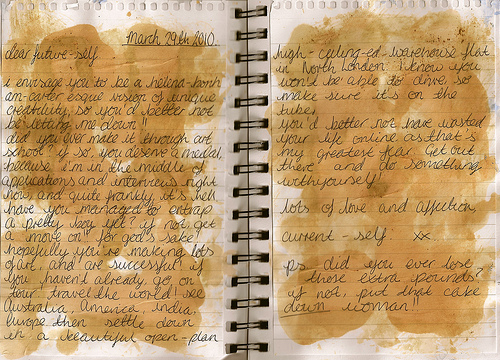 March 29th 2010
dear future-self
i envisage you to be a helena-bonh
am-carter esque vision of unique
creativity, so you'd better not
be letting me down!!
did you ever make it through art
school? if so, you deserve a medal,
because i'm in the middle of
applications and interviews right
now, and quite frankly, it's hell
have you managed to entrap
a pretty boy yet? if not, get
a move on! for god's sake!
hopefully you're making lots
of art, and are successful! if
you haven't already, go on
tour, travel the world! see
Australia, America, India,
Europe. then settle down
in a beautiful open-plan
high-ceiling-ed warehouse flat
in North London. i know you
won't be able to drive, so
make sure it's on the
tube!
you'd better not have wasted
your life online as that's
my greatest fear. Get out
there and do something
worthyourself!
lots of love and affection,
current-self xx
ps. did you ever lose
those extra pounds?
if not, put that cake
down woman!!